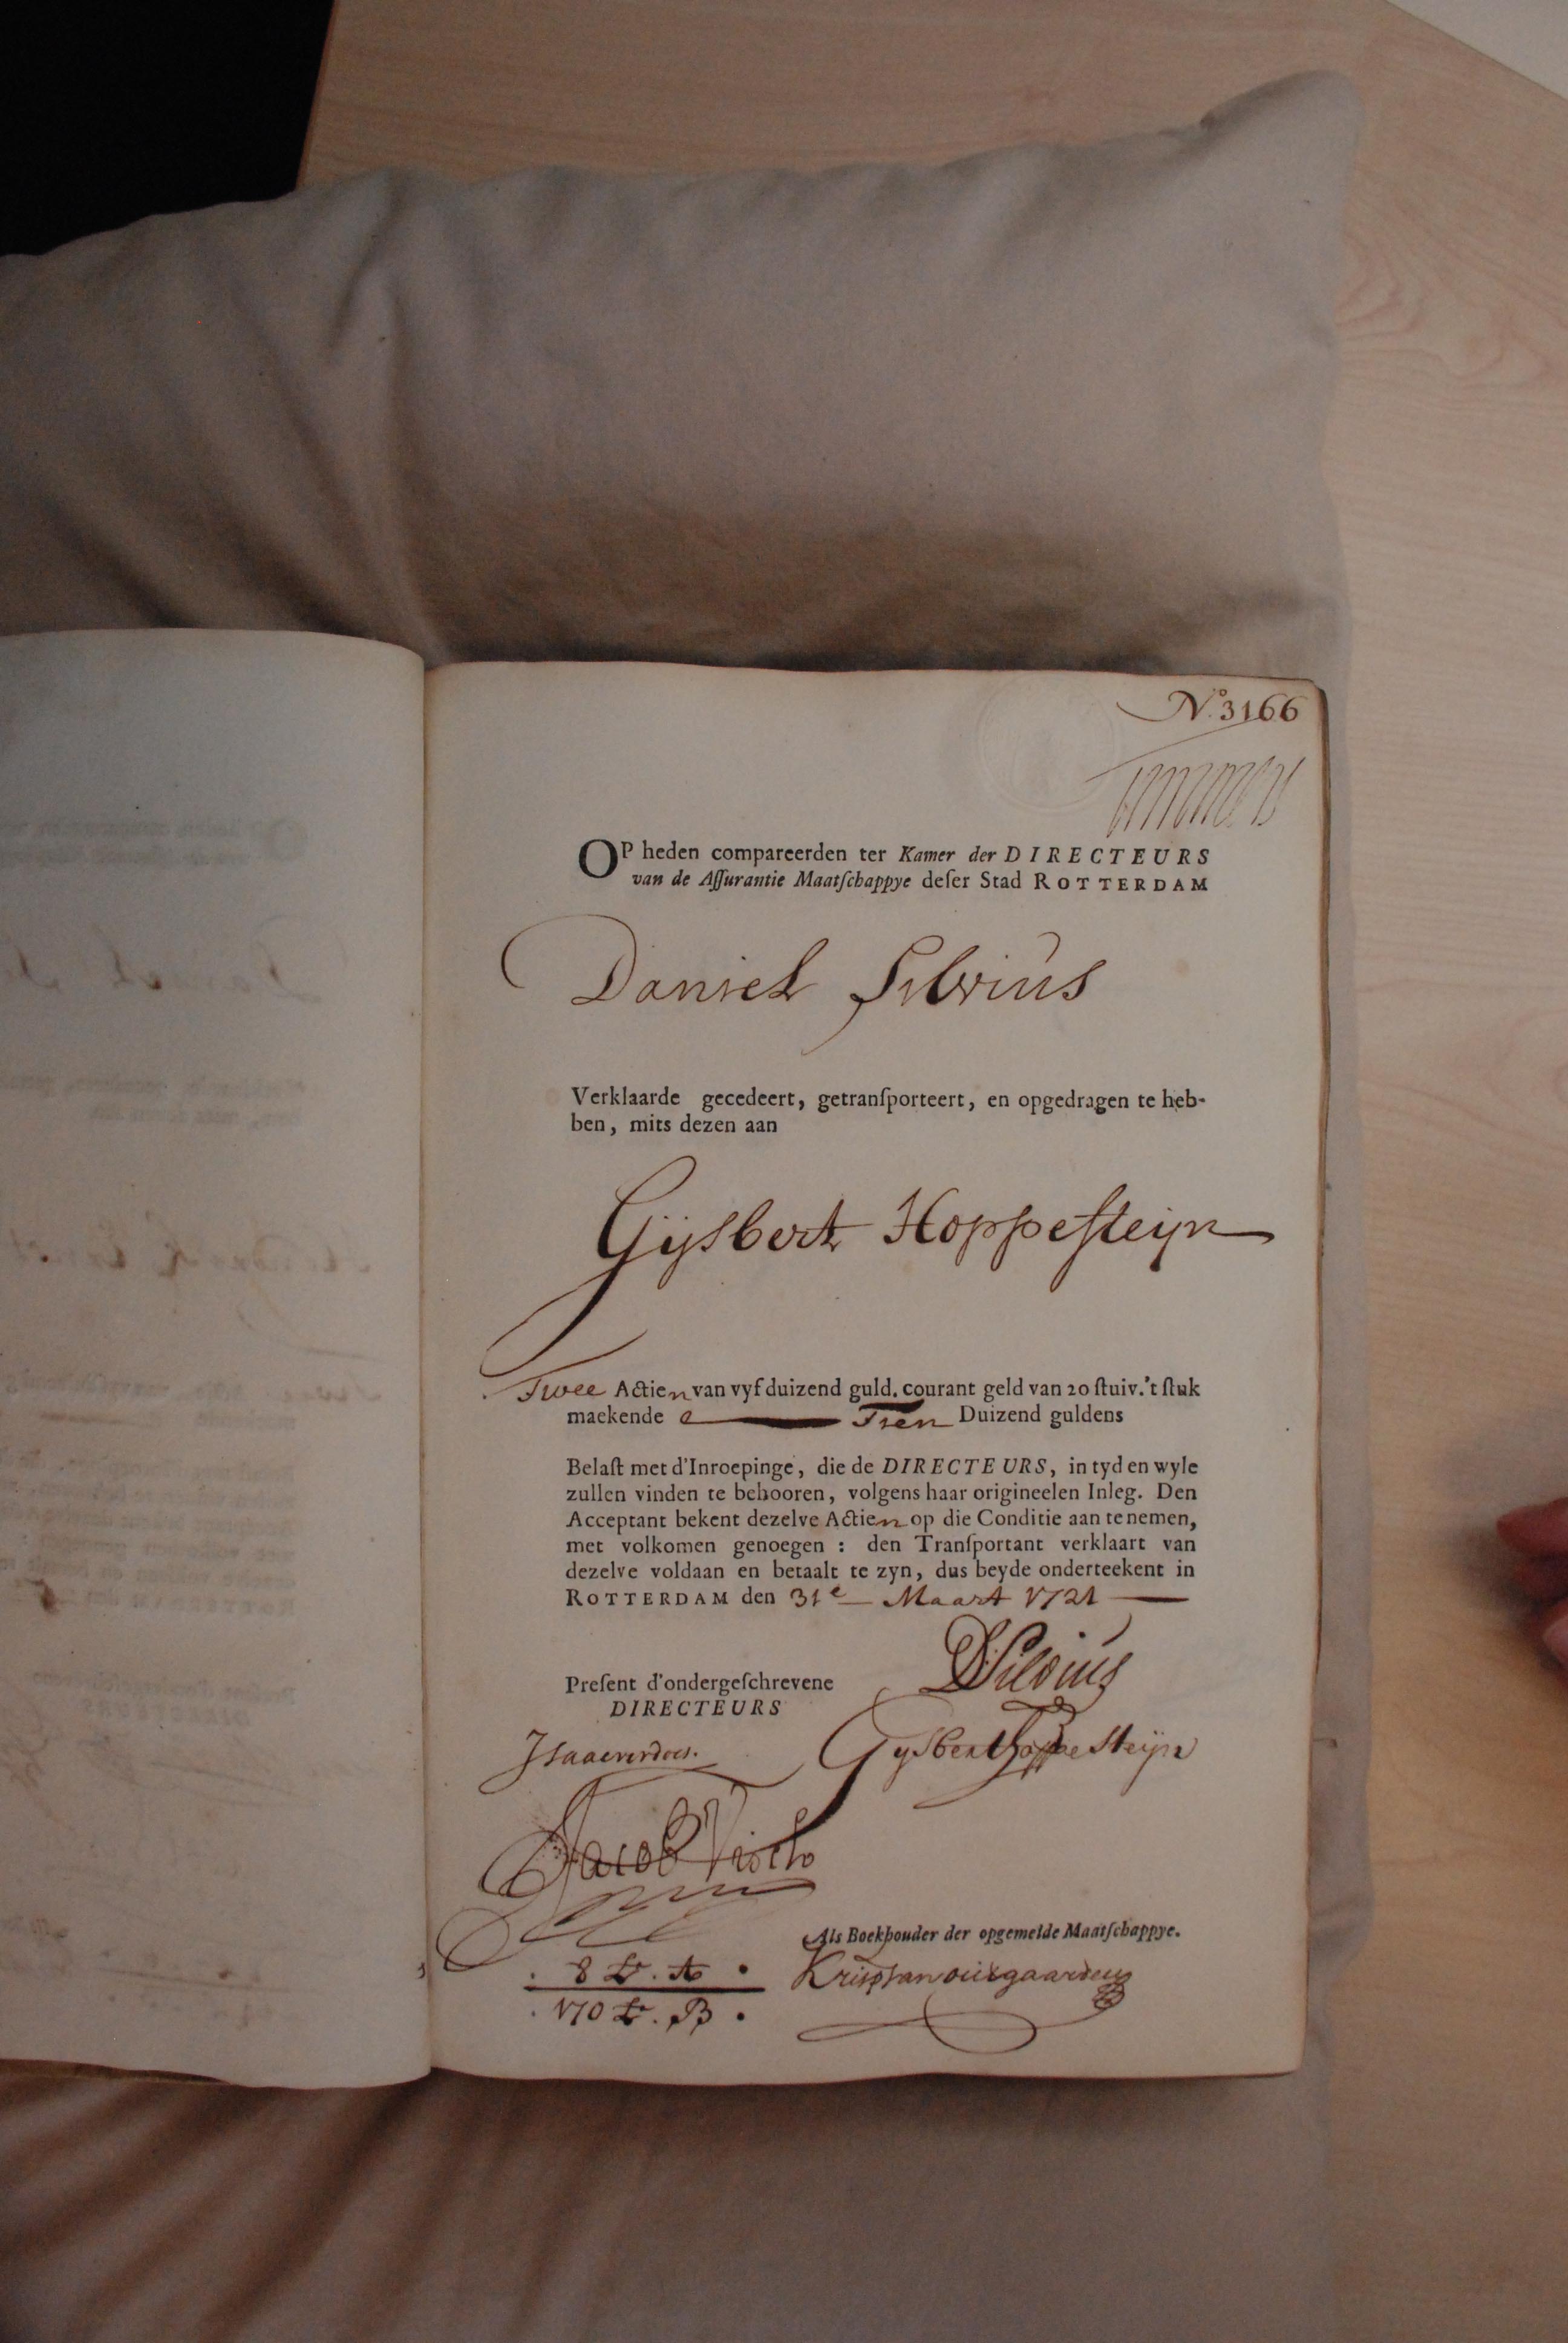 No. 3166
OP heden compareerden ter Kamer der DIRECTEURS
van de Aſſurantie Maatſchappye deſer Stad ROTTERDAM
Daniel Silvius
Verklaarde gecedeert, getranſporteert, en opgedragen te heb-
ben, mits dezen aan
Gijsbert Hoppeſteijn
Twee Actien van vyf duizend guld. courant geld van 20 ſtuiv. 't ſtuk
maekende Tien Duizend guldens
Belaſt met d'Inroepinge, die de DIRECTEURS, in tyd en wyle
zullen vinden te behooren, volgens haar origineelen Inleg. Den
Acceptant bekent dezelve Actien op die Conditie aan te nemen,
met volkomen genoegen : den Tranſportant verklaart van
dezelve voldaan en betaalt te zyn, dus beyde onderteekent in
ROTTERDAM den 31e Maart 1721
DSilvius
Preſent d'ondergeſchrevene
DIRECTEURS
Gysbert Hoppesteijn
Jacob
Als Boekhouder der opgemelde Maatſchappye.
8 Lr. A
170 Lr. B